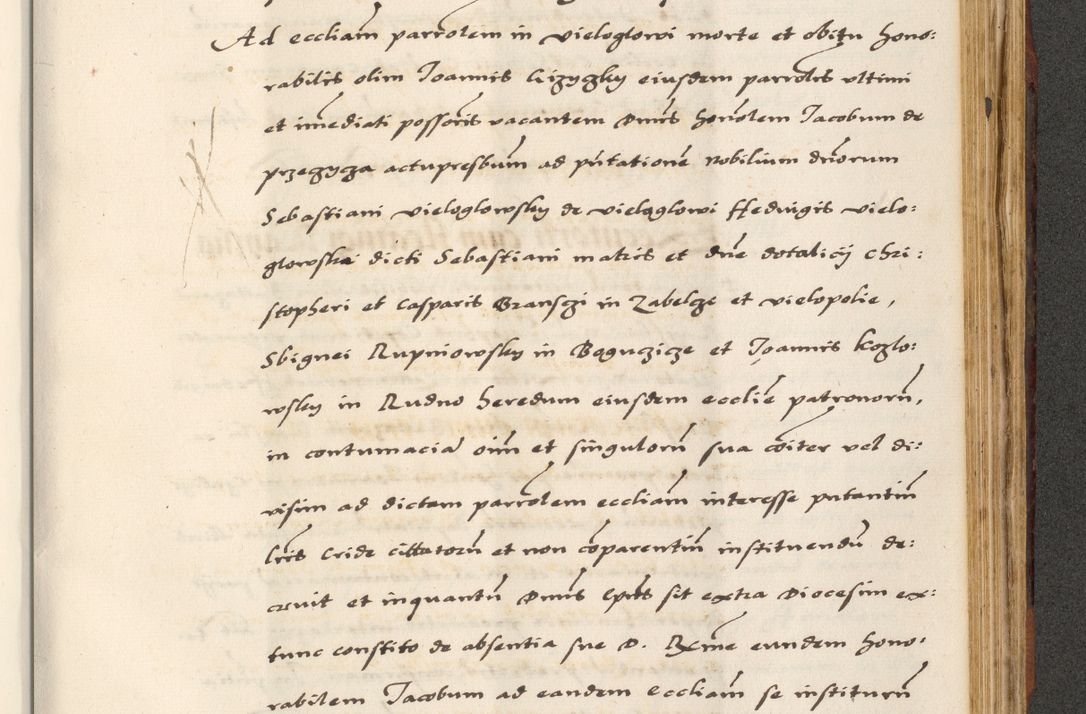 Ad eccliam parrolem in Vieloglowi morte et obitu hono:
rabilis olim Joannis Gizyczky eiusdem parrolis vltimi
et imediati possoris vacantem Dnus honolem Jacobum de
przegycza actupresbum ad pntatione nobilium dnorum
Sebastiani Vieloglowsky de Vieloglowi Hedvigis Vielo:
glowska dicti Sebastiani matris et dne dotalicij Chri:
stopheri et Casparis Bransczi in Zabelcze et Vielopolie,
Sbignei Rupniowsky in Boguczicze et Joannis Kozlo:
wsky in Rudno heredum eiusdem ecclie patronoru,
in contumacia oim et singuloru sua coiter vel di:
visim ad dictam parrolem eccliam interesse putantiu
lris Cride cittatoru et non coparentiu instituendu de:
crvit et inquantu Dnus epus sit extra Diocesim ex:
tunc constito de absentia sue D. Rme eundem hono:
rabilem Jacobum ad eandem eccliam se instituru